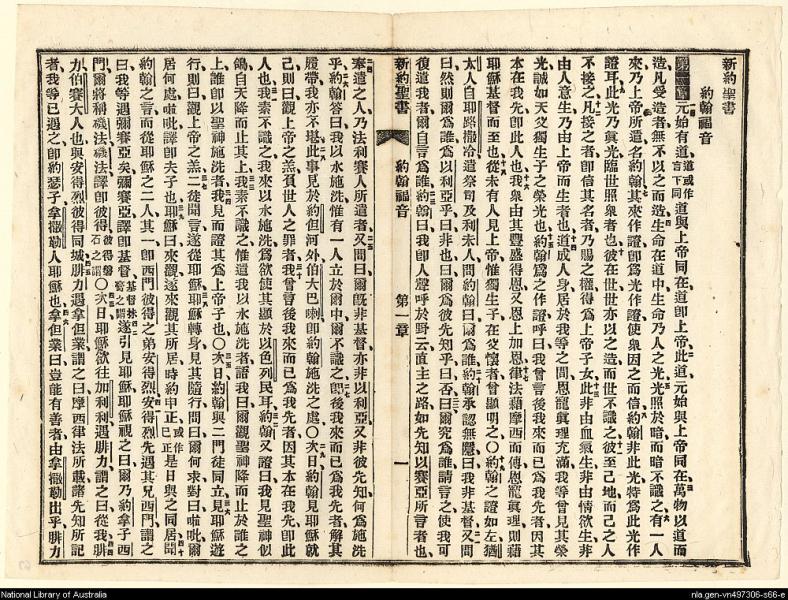 新約聖書
約翰福音
第一章 元始有道道或作言下同道與上帝同在道卽上帝此道元始與上帝同在萬物以道而
造凡受造者無不以之而造生命在道中生命乃人之光光照於暗而暗不識之有一人
來乃上帝所遣名約翰其來作證卽爲光作證使衆因之而信約翰非此光特爲此光作
證耳此光乃眞光臨世照衆者也彼在世世亦以之造而世不識之彼至己地而己之人
不接之凡接之者卽信其名者乃賜之權得爲上帝子女此非由血氣生非由情欲生非
由人意生乃由上帝而生者也道成人身居於我等之間恩寵眞理充滿我等曾見其榮
光誠如天父獨生子之榮光也約翰爲之作證呼曰我曾言後我來而已爲我先者因其
本在我先卽此人也我衆由其豐盛得恩又恩上加恩律法藉摩西而傳恩寵眞理則藉
耶穌基督而至也從未有人見上帝惟獨生子在父懷者曾顯明之○約翰之證如左猶
太人自耶路撒冷遣祭司及利未人問約翰曰爾爲誰約翰承認無隱曰我非基督又問
曰然則爾爲誰爲以利亞乎曰非也曰爾爲彼先知乎曰否曰爾究爲誰請言之使我可
復遣我者爾自言爲誰約翰曰我卽人聲呼於野云直主之路如先知以賽亞所言者也
新約聖書 約翰福音 第一章 一
奉遣之人乃法利賽人所遣者又問曰爾旣非基督亦非以利亞又非彼先知何爲施洗
乎約翰答曰我以水施洗惟有一人立於爾中爾不識之卽後我來而已爲我先者解其
履帶我亦不堪此事見於約但河外伯大巴喇卽約翰施洗之處○次日約翰見耶穌就
己則曰觀上帝之羔負世人之罪者我曾言後我來而已爲我先者因其本在我先卽此
人也我素不識之我來以水施洗爲欲使其顯於以色列民耳約翰又證曰我見聖神似
鴿自天降而止其上我素不識之惟遣我以水施洗者語我曰爾觀聖神降而止於誰之
上誰卽以聖神施洗者我見而證其爲上帝子也○次日約翰與二門徒同立見耶穌遊
行則曰觀上帝之羔二徒聞言遂從耶穌耶穌轉身見其隨行問曰爾何求對曰啦吡爾
居何處啦吡譯卽夫子也耶穌曰來觀遂來觀其所居時約申正或作巳正是日與之同居聞
約翰之言而從耶穌之二人其一卽西門彼得之弟安得烈安得烈先遇其兄西門謂之
曰我等遇彌賽亞矣彌賽亞譯卽基督基督卽受膏之謂遂引見耶穌耶穌視之曰爾乃約拿子西
門爾將稱磯法磯法譯卽彼得彼得磐石之謂○次日耶穌欲往加利利遇腓力謂之曰從我腓
力伯賽大人也與安得烈彼得同城腓力遇拿但業謂之曰摩西律法所載諸先知所記
者我等已遇之卽約瑟子拿撒勒人耶穌也拿但業曰豈能有善者由拿撒勒出乎腓力
National Library of Australia
nla.gen-vn497306-s66-e